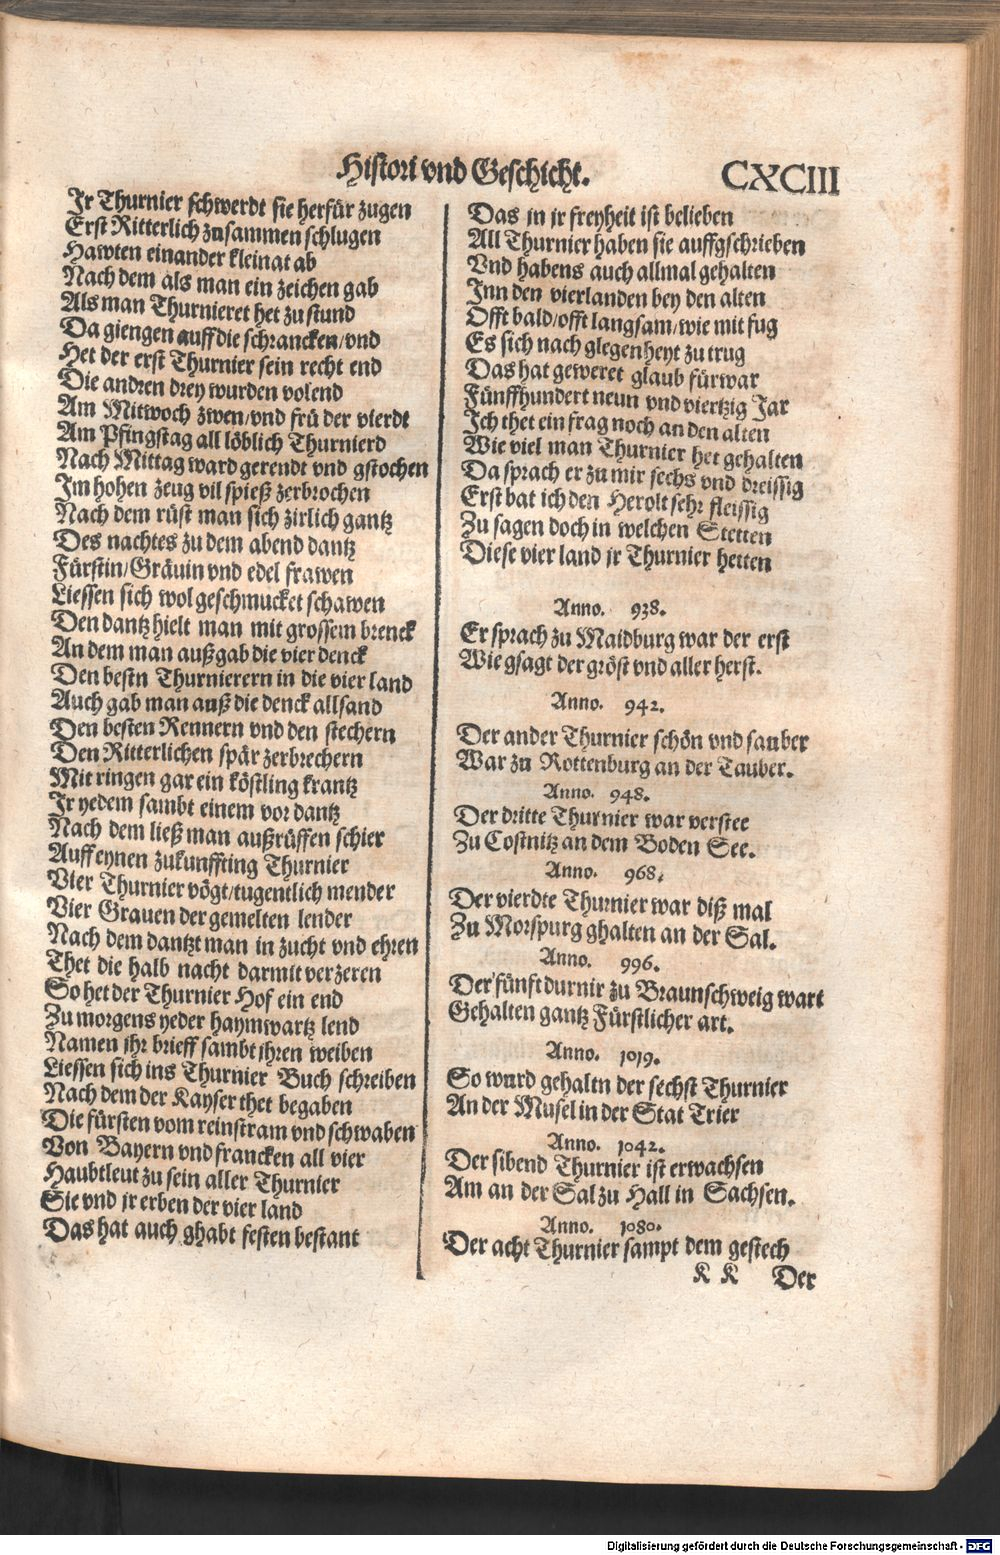 Histori vnd Geschicht.
CXCIII
Jr Thurnier schwerdt sie herfür zugen
Erst Ritterlich zusammen schlugen
Hawten einander kleinat ab
Nach dem als man ein zeichen gab
Als man Thurnieret het zu stund
Da giengen auff die schrancken/vnd
Het der erst Thurnier sein recht end
Die andren drey wurden volend
Am Mitwoch zwen/vnd frü der vierdt
Am Pfingstag all löblich Thurnierd
Nach Mittag ward gerendt vnd gstochen
Jm hohen zeug vil spieß zerbrochen
Nach dem rüst man sich zirlich gantz
Des nachtes zu dem abend dantz
Fürstin/Gräuin vnd edel frawen
Liessen sich wol geschmücket schawen
Den dantz hielt man mit grossem brenck
An dem man außgab die vier denck
Den bestn Thurnierern in die vier land
Auch gab man auß die denck allsand
Den besten Rennern vnd den stechern
Den Ritterlichen spär zerbrechern
Mit ringen gar ein köstling krantz
Jr yedem sambt einem vor dantz
Nach dem ließ man außrüffen schier
Auff eynen zukunffting Thurnier
Vier Thurnier vögt/tugentlich mender
Vier Grauen der gemelten lender
Nach dem dantzt man in zucht vnd ehren
Thet die halb nacht darmit verzeren
So het der Thurnier Hof ein end
Zu morgens yeder haymwartz lend
Namen jhr brieff sambt jhren weiben
Liessen sich ins Thurnier Buch schreiben
Nach dem der Kayser thet begaben
Die fürsten vom reinstram vnd schwaben
Von Bayern vnd francken all vier
Haubtleut zu sein aller Thurnier
Sie vnd jr erben der vier land
Das hat auch ghabt festen bestant
Das jn jr freyheit ist belieben
All Thurnier haben sie auffgschrieben
Vnd habens auch allmal gehalten
Jnn den vierlanden bey den alten
Offt bald/offt langsam/wie mit fug
Es sich nach glegenheyt zu trug
Das hat geweret glaub fürwar
Fünffhundert neun vnd viertzig Jar
Jch thet ein frag noch an den alten
Wie viel man Thurnier het gehalten
Da sprach er zu mir sechs vnd dreissig
Erst bat ich den Herolt sehr fleissig
Zu sagen doch in welchen Stetten
Diese vier land jr Thurnier hetten
Anno. 938.
Er sprach zu Maidburg war der erst
Wie gsagt der gröst vnd aller herst.
Anno. 942.
Der ander Thurnier schön vnd sauber
War zu Rottenburg an der Tauber.
Anno. 948.
Der dritte Thurnier war verstee
Zu Costnitz an dem Boden See.
Anno. 968.
Der vierdte Thurnier war diß mal
Zu Morspurg ghalten an der Sal.
Anno. 996.
Der fünft durnir zu Braunschweig wart
Gehalten gantz Fürstlicher art.
Anno. 1019.
So ward gehaltn der sechst Thurnier
An der Musel in der Stat Trier
Anno. 1042.
Der sibend Thurnier ist erwachsen
Am an der Sal zu Hall in Sachsen.
Anno. 1080.
Der acht Thurnier sampt dem gestech
K K Der
Digitalisierung gefördert durch die Deutsche Forschungsgemeinschaft - DFG